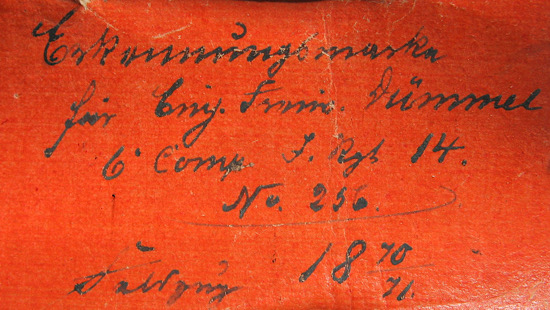 Erkennungsmarke
für Einj. Freiw. Dümmel
6. Comp. I. Rgt. 14.
No. 256.
Feldzug 18 70/71.